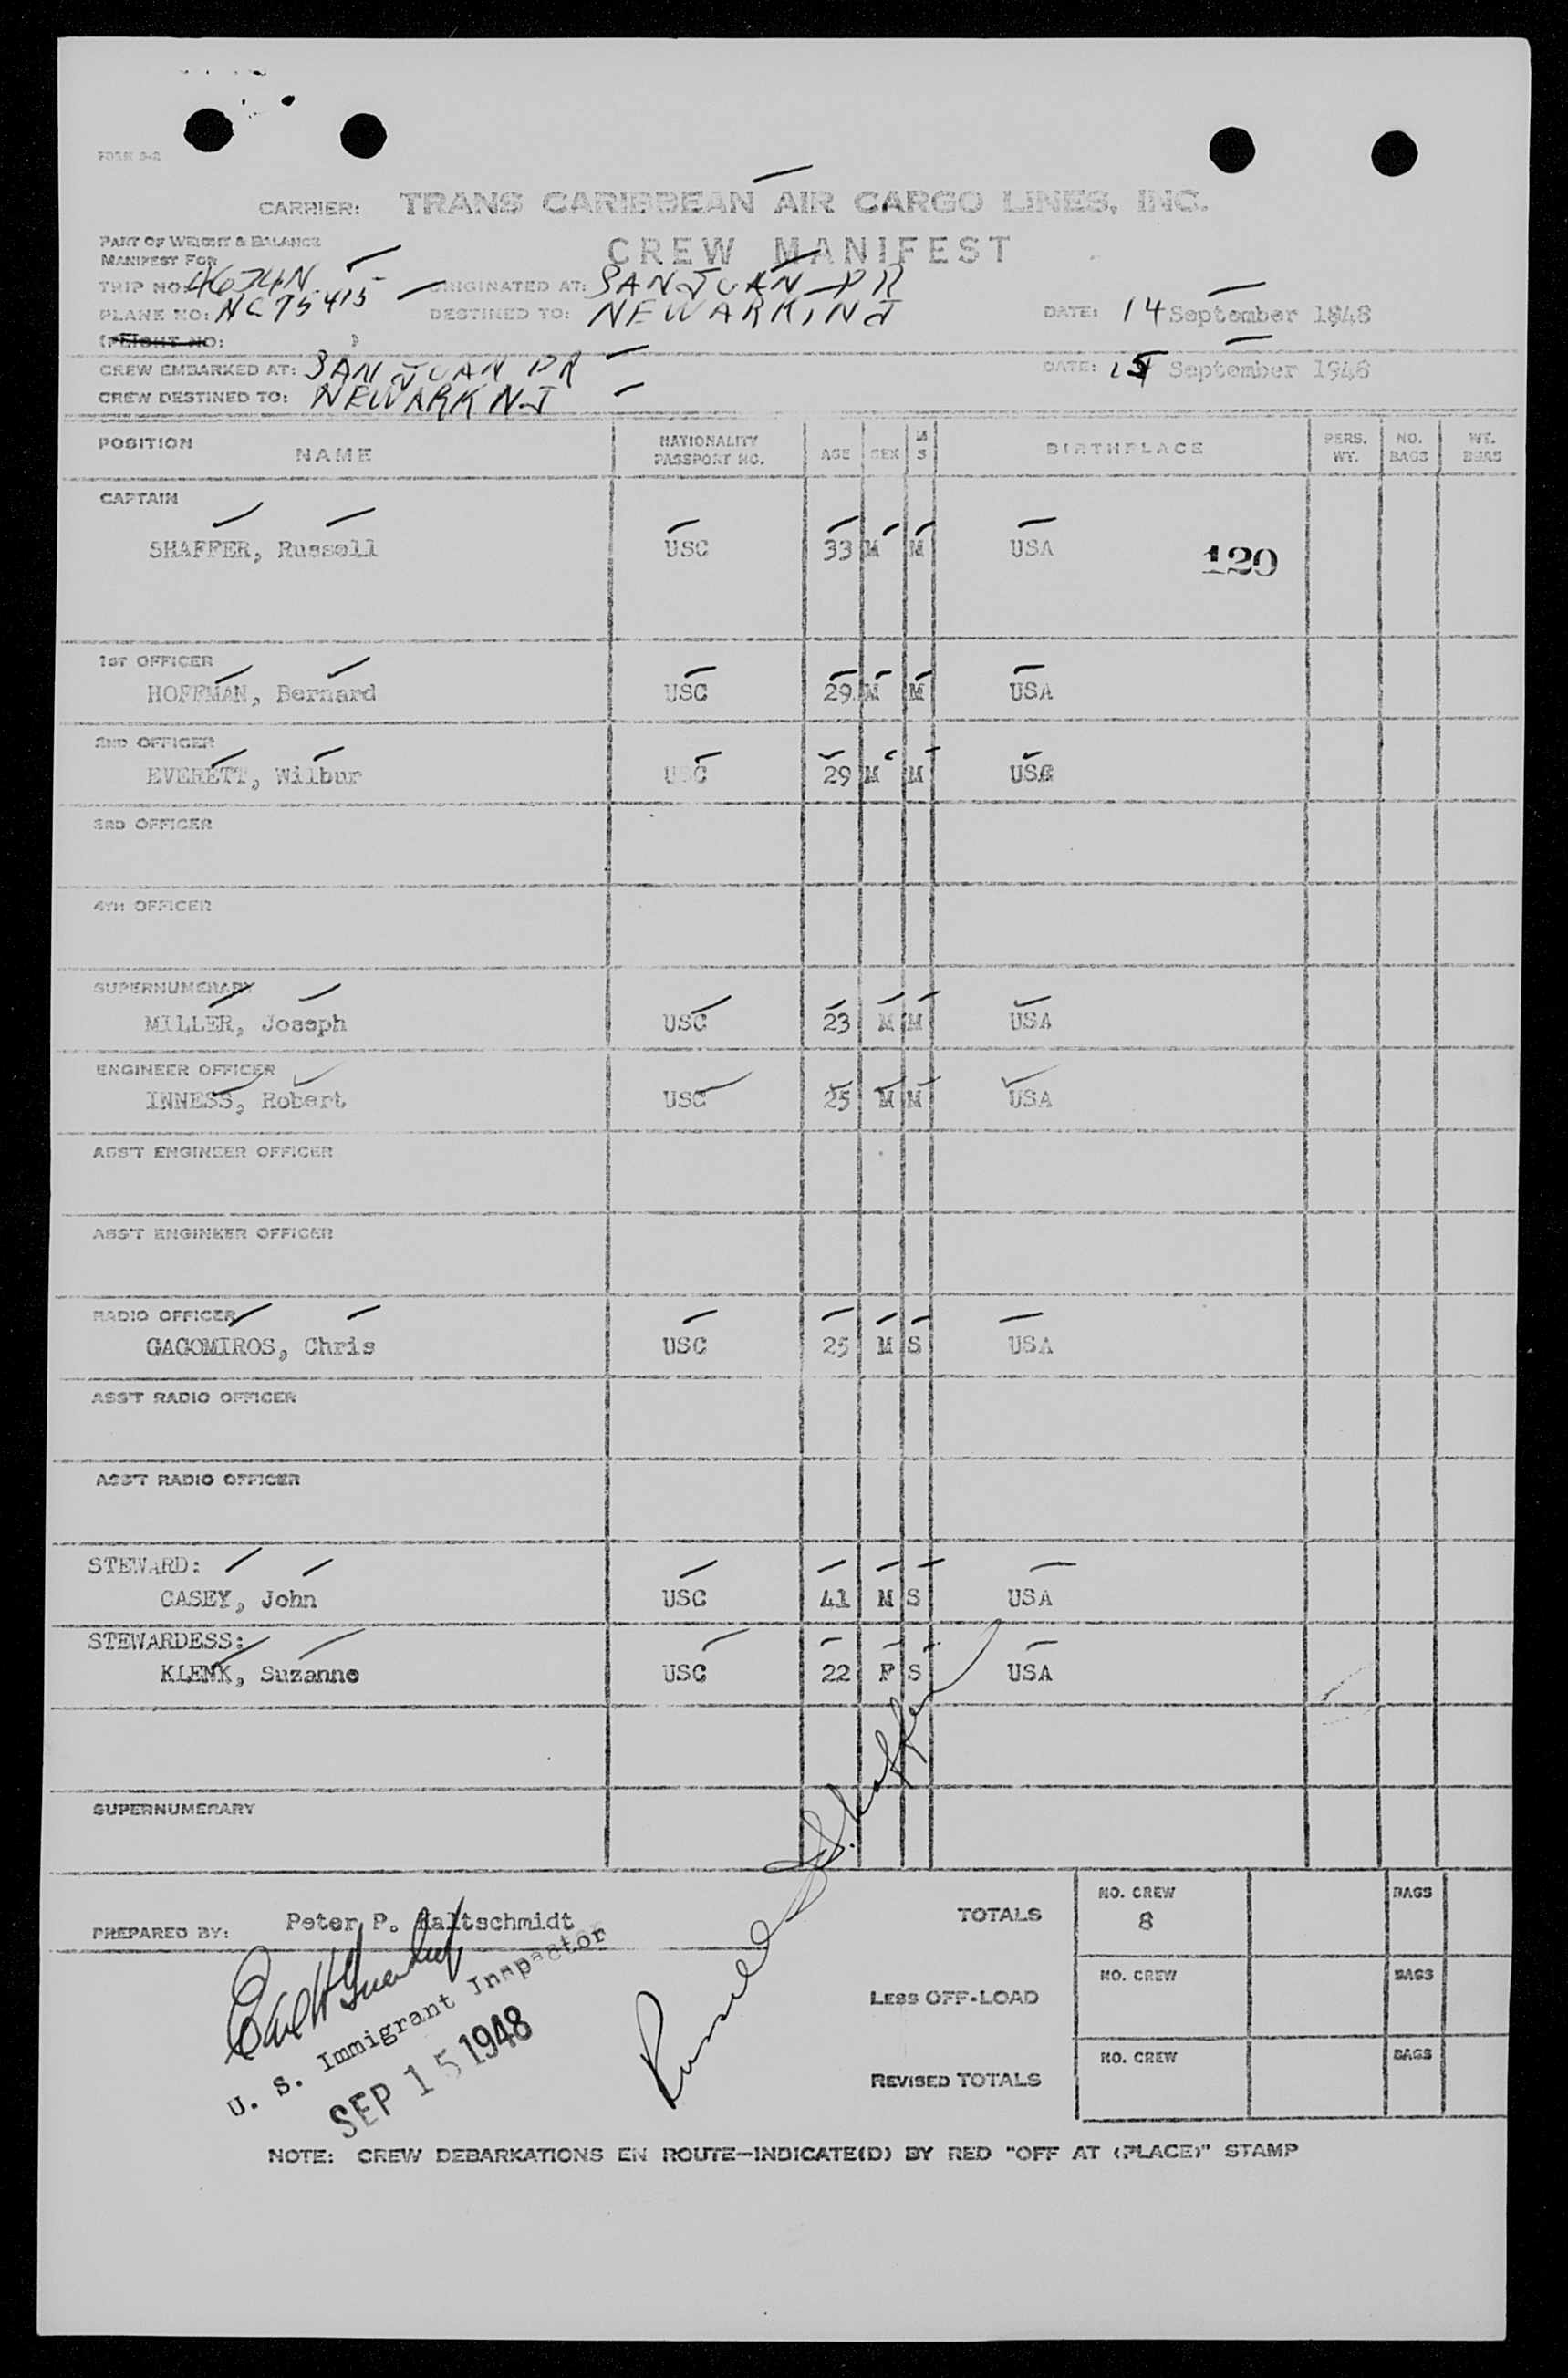 CARRIER: TRANS CARIBBEAN AIR CARGO LINES, INC.
PART OF WEIGHT & BALANCE
MANIFEST FOR
CREW MANIFEST
TRIP NO: ORIGINATED AT: SAN JUAN PR
PLANE NO: NC 75415 DESTINED TO: NEWARK, NJ DATE: 14 September 1948
(FLIGHT NO: )
CREW EMBARKED AT: SAN JUAN PR DATE: 15 September 1948
CREW DESTINED TO: NEWARK NJ
POSITION NAME NATIONALITY PASSPORT NO. AGE SEX M S BIRTHPLACE PERS. WT. NO. BAGS WT. BAGS
CAPTAIN
SHAFFER, Russell USC 33 M M USA 120
1ST OFFICER
HOFFMAN, Bernard USC 29 M M USA
2ND OFFICER
EVERETT, Wilbur USC 29 M M USA
3RD OFFICER
4TH OFFICER
SUPERNUMERARY
MILLER, Joseph USC 23 M M USA
ENGINEER OFFICER
INNESS, Robert USC 25 M M USA
ASS'T ENGINEER OFFICER
ASS'T ENGINEER OFFICER
RADIO OFFICER
GAGOMIROS, Chris USC 25 M S USA
ASS'T RADIO OFFICER
ASS'T RADIO OFFICER
STEWARD:
CASEY, John USC 41 M S USA
STEWARDESS:
KLENK, Suzanne USC 22 F S USA
SUPERNUMERARY
PREPARED BY: Peter P. Kaltschmidt
Russell S. Shaffer
U. S. Immigrant Inspector
SEP 15 1948
TOTALS NO. CREW 8 BAGS
LESS OFF-LOAD NO. CREW BAGS
REVISED TOTALS NO. CREW BAGS
NOTE: CREW DEBARKATIONS EN ROUTE—INDICATE(D) BY RED "OFF AT (PLACE)" STAMP